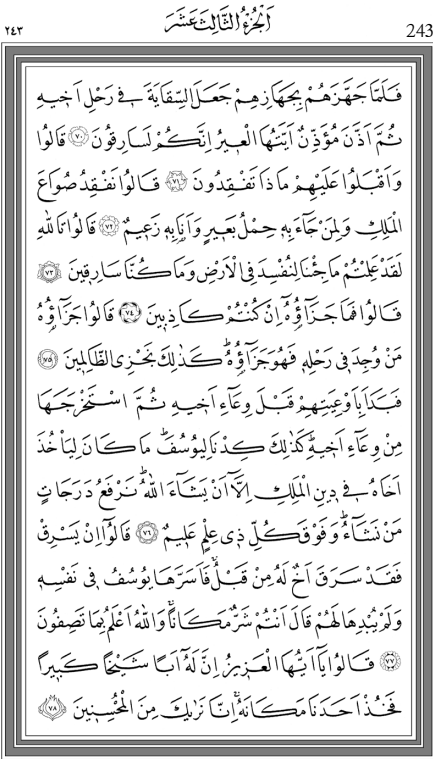 ٢٤٣ اَلْجُزْءُ الثَّالِثَ عَشَرَ 243
فَلَمَّا جَهَّزَهُمْ بِجَهَازِهِمْ جَعَلَ السِّقَايَةَ فٖى رَحْلِ اَخٖيهِ
ثُمَّ اَذَّنَ مُؤَذِّنٌ اَيَّتُهَا الْعٖيرُ اِنَّكُمْ لَسَارِقُونَ ﴿٧٠﴾ قَالُوا
وَاَقْبَلُوا عَلَيْهِمْ مَاذَا تَفْقِدُونَ ﴿٧١﴾ قَالُوا نَفْقِدُ صُوَاعَ
الْمَلِكِ وَلِمَنْ جَٓاءَ بِهٖ حِمْلُ بَعٖيرٍ وَاَنَا۬ بِهٖ زَعٖيمٌ ﴿٧٢﴾ قَالُوا تَاللّٰهِ
لَقَدْ عَلِمْتُمْ مَا جِئْنَا لِنُفْسِدَ فِى الْاَرْضِ وَمَا كُنَّا سَارِقٖينَ ﴿٧٣﴾
قَالُوا فَمَا جَزَٓاؤُ۬هُٓ اِنْ كُنْتُمْ كَاذِبٖينَ ﴿٧٤﴾ قَالُوا جَزَٓاؤُ۬هُ
مَنْ وُجِدَ فٖى رَحْلِهٖ فَهُوَ جَزَٓاؤُ۬هُؕ كَذٰلِكَ نَجْزِى الظَّالِمٖينَ ﴿٧٥﴾
فَبَدَاَ بِاَوْعِيَتِهِمْ قَبْلَ وِعَٓاءِ اَخٖيهِ ثُمَّ اسْتَخْرَجَهَا
مِنْ وِعَٓاءِ اَخٖيهِؕ كَذٰلِكَ كِدْنَا لِيُوسُفَؕ مَا كَانَ لِيَاْخُذَ
اَخَاهُ فٖى دٖينِ الْمَلِكِ اِلَّٓا اَنْ يَشَٓاءَ اللّٰهُؕ نَرْفَعُ دَرَجَاتٍ
مَنْ نَشَٓاءُؕ وَفَوْقَ كُلِّ ذٖى عِلْمٍ عَلٖيمٌ ﴿٧٦﴾ قَالُٓوا اِنْ يَسْرِقْ
فَقَدْ سَرَقَ اَخٌ لَهُ مِنْ قَبْلُۚ فَاَسَرَّهَا يُوسُفُ فٖى نَفْسِهٖ
وَلَمْ يُبْدِهَا لَهُمْ قَالَ اَنْتُمْ شَرٌّ مَكَانًاۚ وَاللّٰهُ اَعْلَمُ بِمَا تَصِفُونَ
﴿٧٧﴾ قَالُوا يَٓا اَيُّهَا الْعَزٖيزُ اِنَّ لَهُٓ اَبًا شَيْخًا كَبٖيرًا
فَخُذْ اَحَدَنَا مَكَانَهُۚ اِنَّا نَرٰيكَ مِنَ الْمُحْسِنٖينَ ﴿٧٨﴾